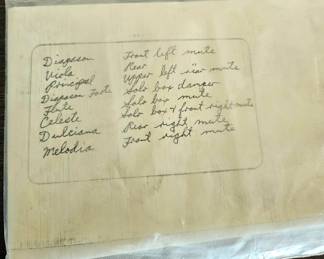 Diapason Front left mute
Viola Rear
Principal Upper left rear mute
Diapason Forte Solo box damper
Flute Solo box mute
Celeste Solo box & front right mute
Dulciana Rear right mute
Melodia Front right mute